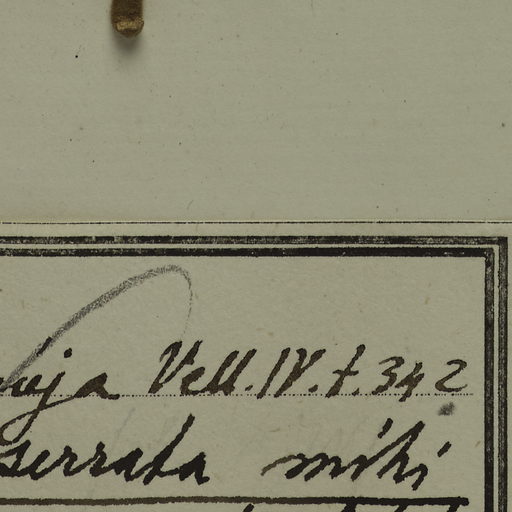 Vell. IV. t. 342
serrata mihi